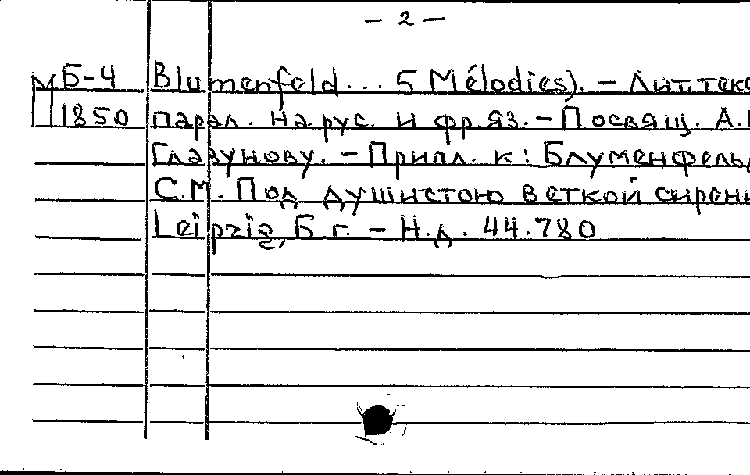 — 2 —
М Б-4 Blumenfeld... 5 Mélodies). — Лит. текс
1850 парал. на рус. и фр. яз. — Посвящ. А.
Глазунову. — Прилл. к: Блуменфельд
С.М. Под душистою веткой сирени
Leipzig, Б. г. — Н.д. 44.780